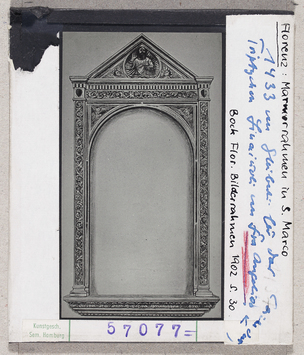 Florenz: Marmorrahmen in S. Marco
1433 von Ghiberti für das
Triptychon Linaiuoli von Fra Angelico
Bock Flor. Bilderrahmen 1902 S. 30
Kunstgesch.
Sem. Bamberg
57077